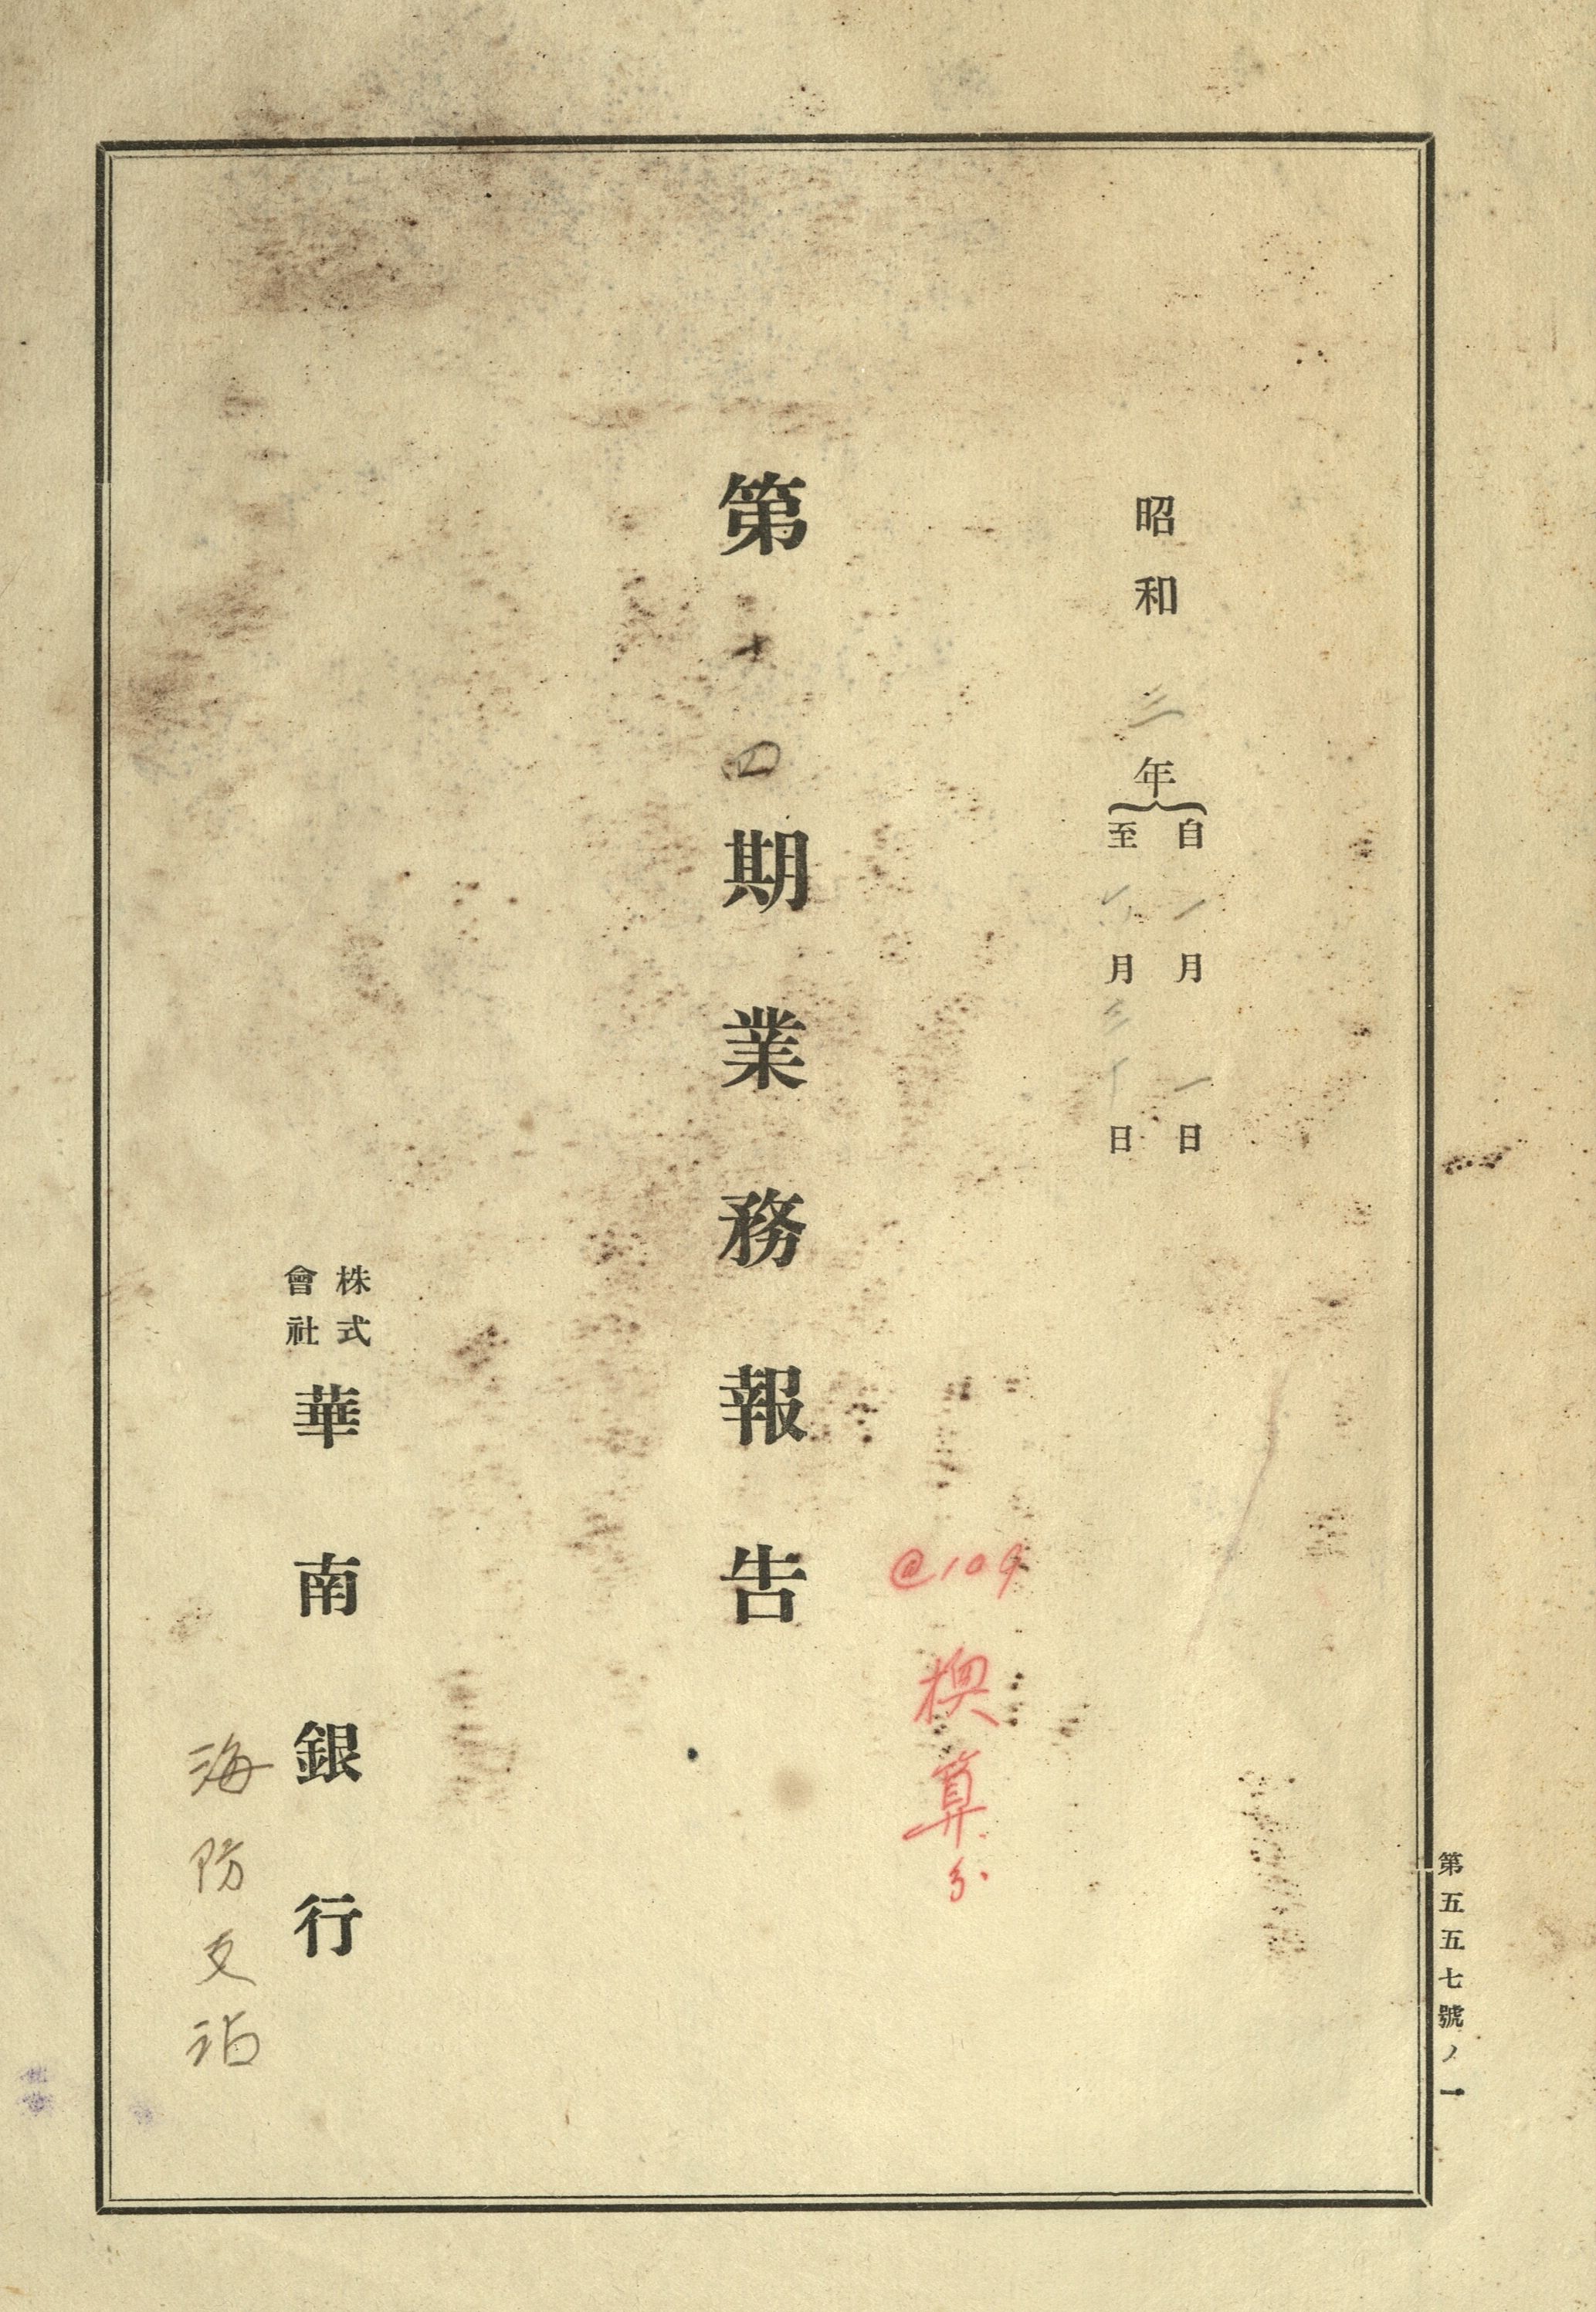 昭和三年
自一月一日
至六月三十日
@109
換算分
第十四期業務報告
株式會社華南銀行
海防支店
第五五七號ノ一